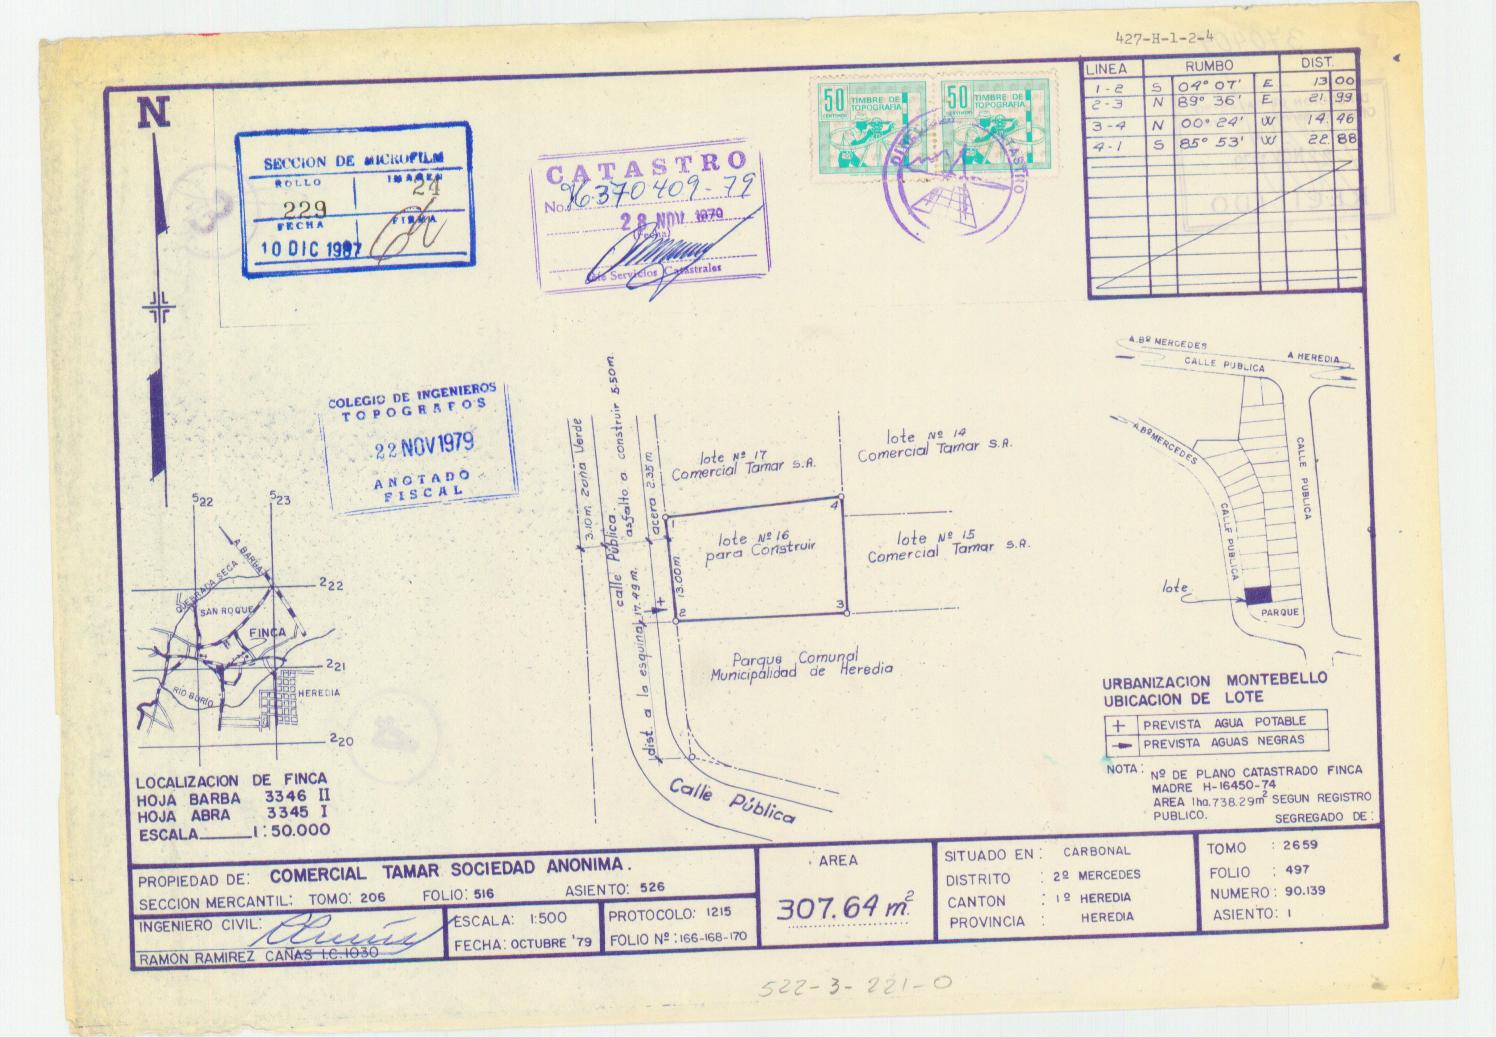 427-H-1-2-4
LINEA RUMBO DIST.
1-2 S 04° 07' E 13 00
2-3 N 89° 36' E 21. 99
3-4 N 00° 24' W 14. 46
4-1 S 85° 53' W 22. 88
N
SECCION DE MICROFILM
ROLLO IMAGEN
229 24
FECHA FIRMA
10 DIC 1987
CATASTRO
No. 370409-79
28 NOV. 1979
(Fecha)
de Servicios Catastrales
50 TIMBRE DE TOPOGRAFIA
CENTIMOS
50 TIMBRE DE TOPOGRAFIA
CENTIMOS
CATASTRO
COLEGIO DE INGENIEROS
TOPOGRAFOS
22 NOV 1979
ANOTADO
FISCAL
522 523
A BARBA
QUEBRADA SECA
222
SAN ROQUE
FINCA
221
RIO BURIO
HEREDIA
220
LOCALIZACION DE FINCA
HOJA BARBA 3346 II
HOJA ABRA 3345 I
ESCALA 1:50.000
3.10 m. zona Verde
calle Pública.
asfalto a construir 5.50m.
acera 2.35 m.
lote Nº 17
Comercial Tamar S.A.
lote Nº 14
Comercial Tamar S.A.
lote Nº 16
para Construir
lote Nº 15
Comercial Tamar S.A.
1
2
3
4
13.00 m.
dist. a la esquina 17.49 m.
Parque Comunal
Municipalidad de Heredia
Calle Pública
A.Bº MERCEDES
CALLE PUBLICA
A HEREDIA
A.Bº MERCEDES
CALLE PUBLICA
CALLE PUBLICA
lote
PARQUE
URBANIZACION MONTEBELLO
UBICACION DE LOTE
+ PREVISTA AGUA POTABLE
PREVISTA AGUAS NEGRAS
NOTA: Nº DE PLANO CATASTRADO FINCA
MADRE H-16450-74
AREA 1ha.738.29m² SEGUN REGISTRO
PUBLICO.
SEGREGADO DE:
PROPIEDAD DE: COMERCIAL TAMAR SOCIEDAD ANONIMA.
SECCION MERCANTIL: TOMO: 206 FOLIO: 516 ASIENTO: 526
INGENIERO CIVIL:
RAMON RAMIREZ CAÑAS I.C.1030
ESCALA: 1:500
FECHA: OCTUBRE '79
PROTOCOLO: 1215
FOLIO Nº: 166-168-170
AREA
307.64 m²
SITUADO EN: CARBONAL
DISTRITO : 2º MERCEDES
CANTON : 1º HEREDIA
PROVINCIA : HEREDIA
TOMO : 2659
FOLIO : 497
NUMERO : 90.139
ASIENTO: 1
522-3-221-0